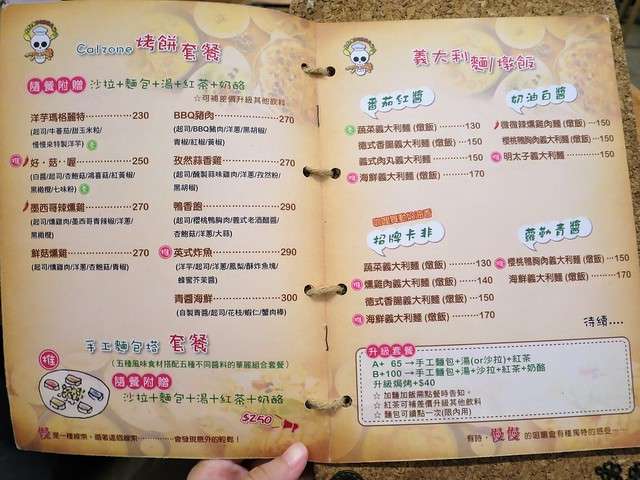 Calzone 烤餅 套餐
隨餐附贈 沙拉+麵包+湯+紅茶+奶酪
☆可補差價升級其他飲料
洋芋瑪格麗特 230
(起司/牛番茄/甜玉米粒/
慢慢來特製洋芋)
推 好．菇··喔 250
(白醬/起司/杏鮑菇/鴻喜菇/紅黃椒/
黑橄欖/七味粉)
墨西哥辣燻雞 270
(起司/燻雞肉/墨西哥青辣椒/洋蔥/
黑橄欖)
鮮菇燻雞 270
(起司/燻雞肉/洋蔥/杏鮑菇/青椒)
BBQ豬肉 270
(起司/BBQ豬肉/洋蔥/黑胡椒/
青椒/紅椒/黃椒)
孜然蒜香雞 270
(起司/醃製蒜味雞肉/洋蔥/孜然粉/
黑胡椒)
鴨香飽 290
(起司/櫻桃鴨胸肉/義式老酒醋醬/
杏鮑菇/洋蔥/大蒜)
推 英式炸魚 290
(洋芋/起司/洋蔥/鳳梨/酥炸魚塊/
蜂蜜芥茉醬)
青醬海鮮 300
(自製青醬/起司/花枝/蝦仁/蟹肉棒)
手工麵包塔 套餐
推 (五種風味食材搭配五種不同醬料的華麗組合套餐)
隨餐附贈
沙拉+麵包+湯+紅茶+奶酪
$250
慢 是一種線索，循著這個線索 會發現意外的輕鬆！
義大利 麵/燉飯
番茄紅醬
蔬菜義大利麵 (燉飯) 130
德式香腸義大利麵 (燉飯) 150
義式肉丸義大利麵 (燉飯) 150
推 海鮮義大利麵 (燉飯) 170
奶油白醬
微微辣燻雞肉麵 (燉飯) 150
櫻桃鴨胸肉義大利麵 (燉飯) 150
推 明太子義大利麵 150
招牌卡菲
蔬菜義大利麵 (燉飯) 130
推 燻雞肉義大利麵 (燉飯) 140
德式香腸義大利麵 (燉飯) 150
推 海鮮義大利麵 (燉飯) 170
蘿勒青醬
推 櫻桃鴨胸肉義大利麵 (燉飯) 150
海鮮義大利麵 (燉飯) 170
待續....
升級套餐
A+ 65 →手工麵包+湯(or沙拉)+紅茶
B+100 →手工麵包+湯+沙拉+紅茶+奶酪
升級焗烤+$40
☆ 加麵加飯需點餐時告知。
☆ 紅茶可補差價升級其他飲料
☆ 麵包可續點一次(限內用)
有時，慢慢 的咀嚼會有種獨特的感受